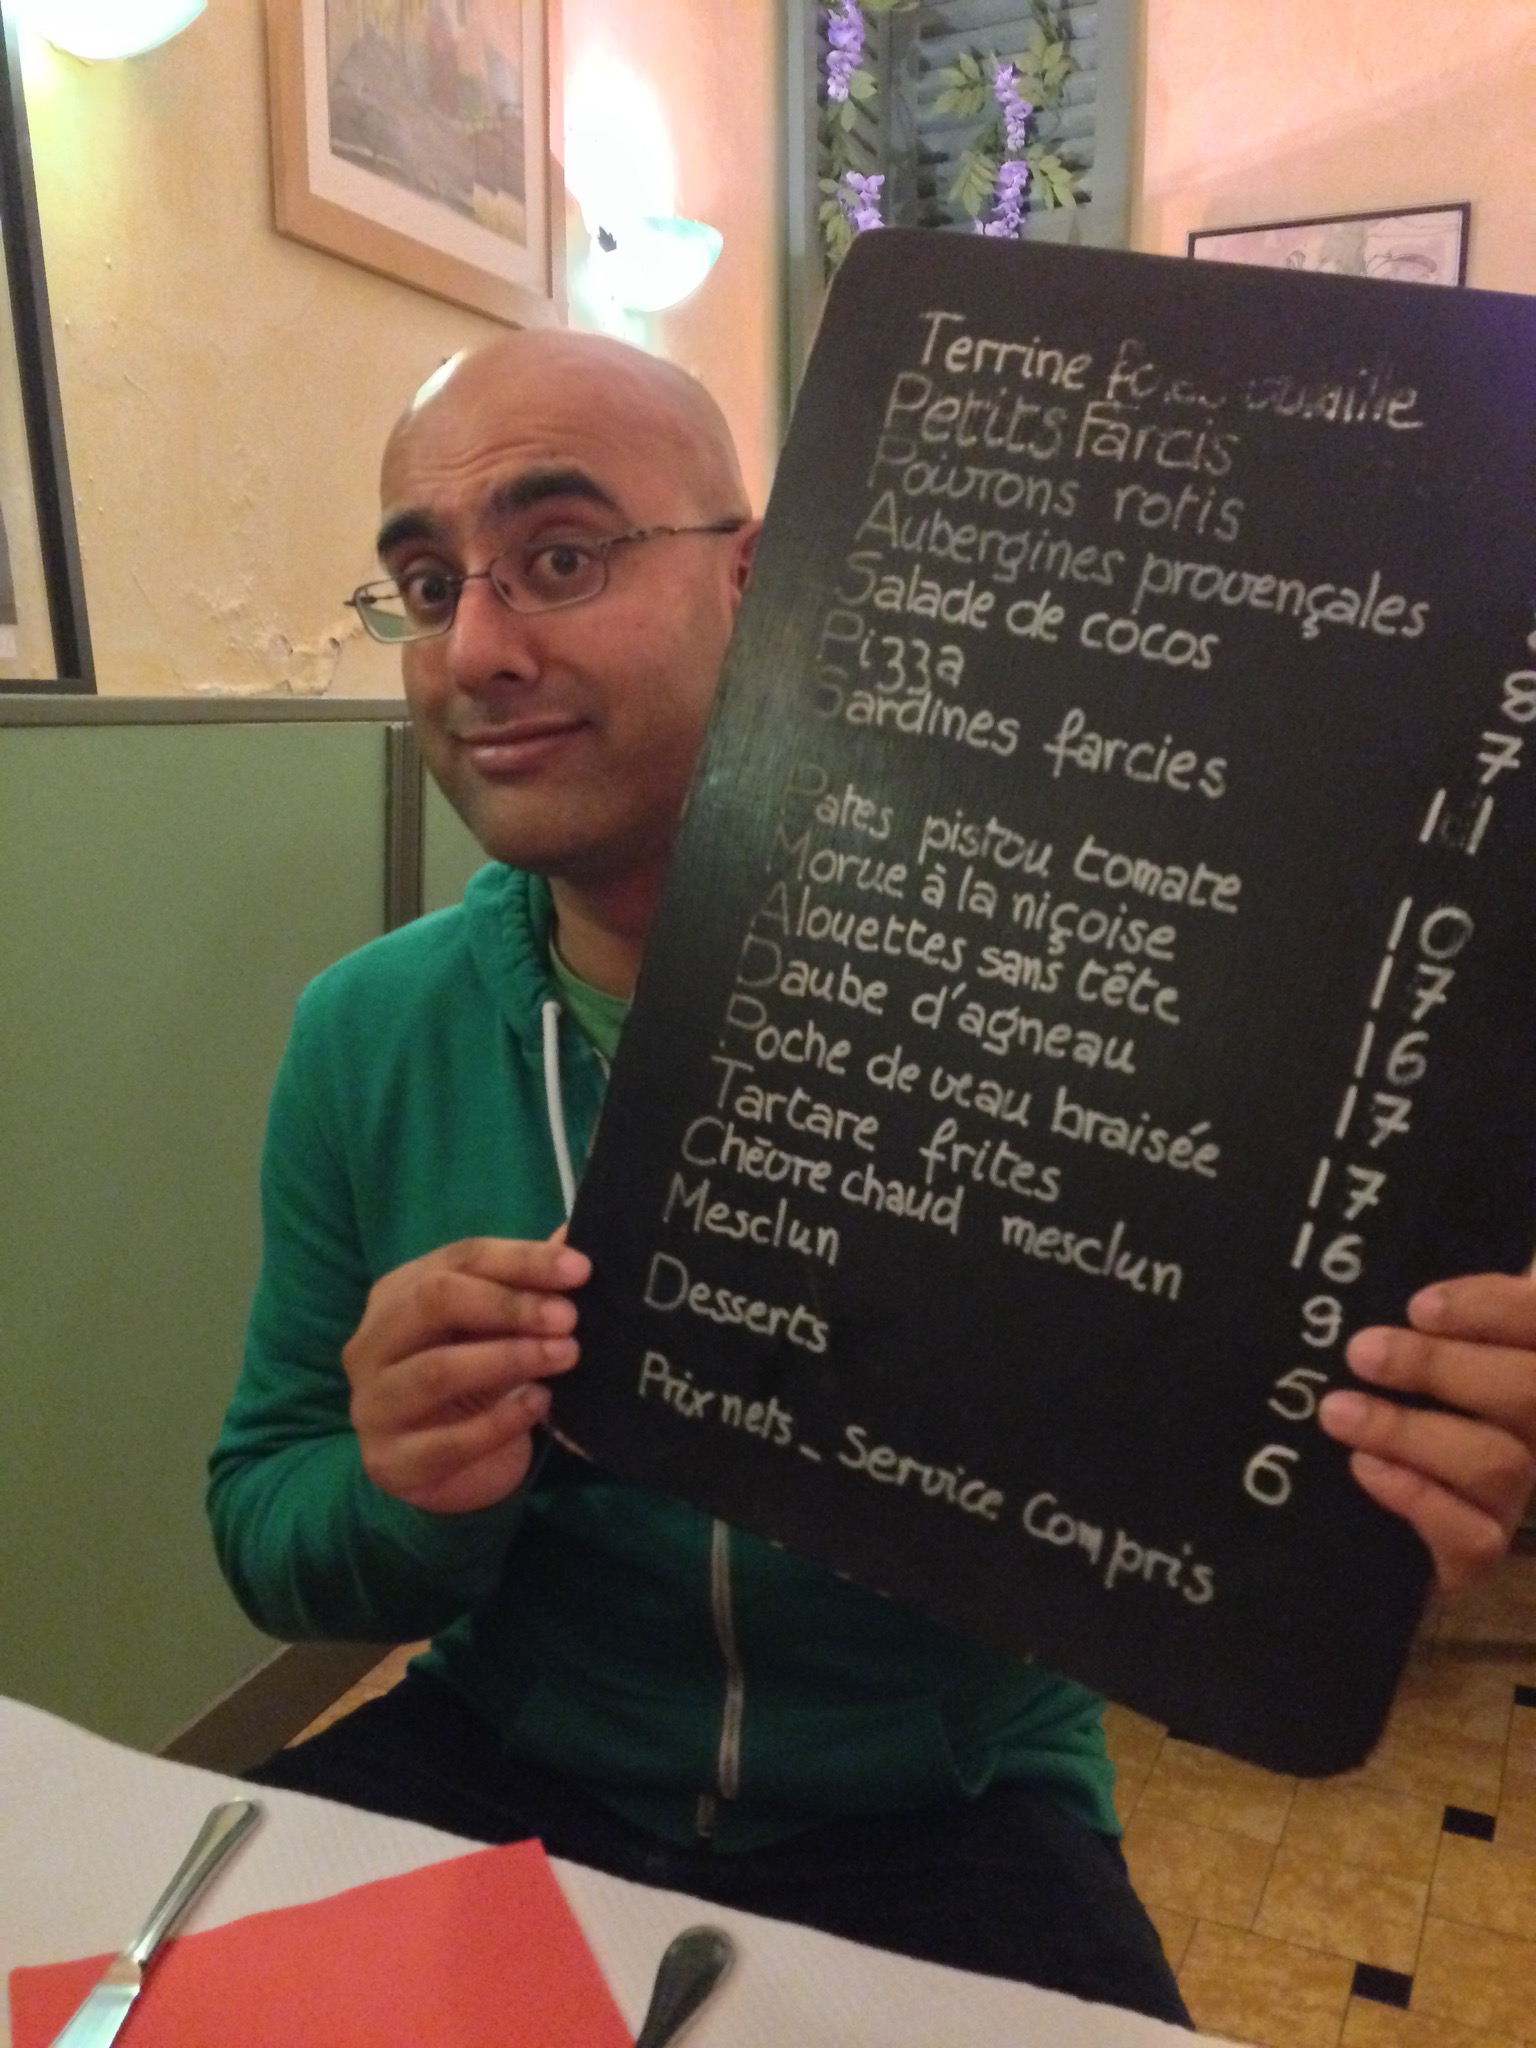 Terrine
Petits Farcis
Poivrons rotis
Aubergines provençales
Salade de cocos 8
Pizza 7
Sardines farcies 11
Pates pistou tomate 10
Morue à la niçoise 17
Alouettes sans tête 16
Daube d'agneau 17
Poche de veau braisée 17
Tartare frites 16
Chèvre chaud mesclun 9
Mesclun 5
Desserts 6
Prix nets _ Service Compris